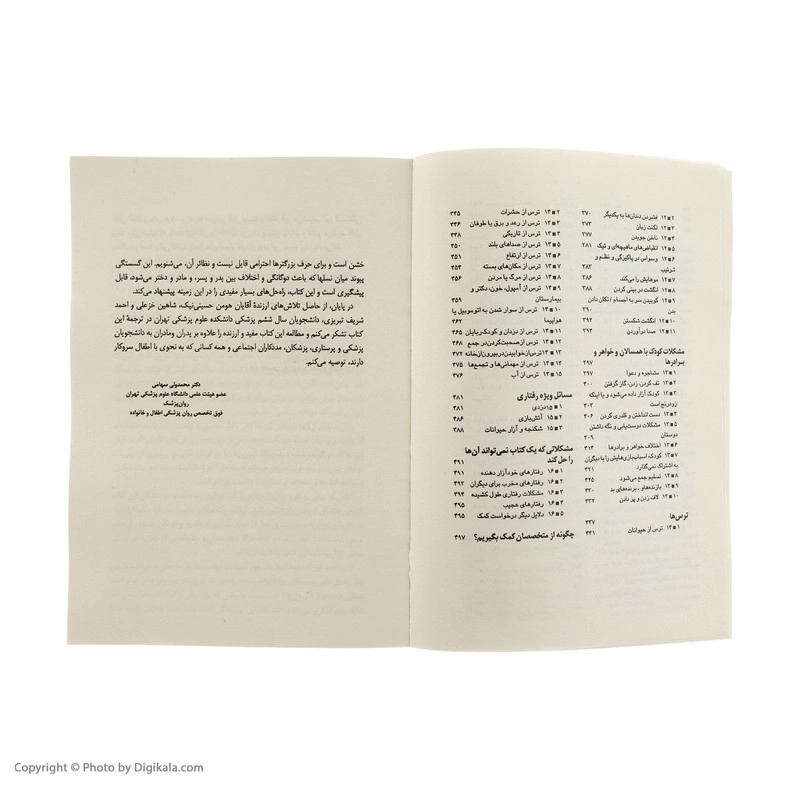 ۲ ■ ۱۲ فشردن دندان‌ها به یکدیگر ۳۷۰
۳ ■ ۱۲ لکنت زبان ۳۷۳
۴ ■ ۱۲ ناخن جویدن ۳۷۷
۵ ■ ۱۲ انقباض‌های ماهیچه‌ای و تیک ۳۸۱
۶ ■ ۱۲ وسواس در پاکیزگی و نظم و
ترتیب ۳۸۳
۷ ■ ۱۲ موهایش را می‌کند ۳۸۶
۸ ■ ۱۲ انگشت در بینی کردن ۳۸۸
۹ ■ ۱۲ کوبیدن سر به اجسام / تکان دادن
بدن ۳۹۰
۱۰ ■ ۱۲ انگشت شکستن ۳۹۲
۱۱ ■ ۱۲ صدا درآوردن ۳۹۴
مشکلات کودک با همسالان و خواهر و
برادرها ۳۹۷
۱ ■ ۱۳ مشاجره و دعوا ۳۹۷
۲ ■ ۱۳ تف کردن، زدن، گاز گرفتن ۴۰۰
۳ ■ ۱۳ کودک آزار داده می‌شود و یا اینکه
زودرنج است ۴۰۳
۴ ■ ۱۳ دست انداختن و قلدری کردن ۴۰۶
۵ ■ ۱۳ مشکلات دوست‌یابی و نگه داشتن
دوستان ۴۰۹
۶ ■ ۱۳ اختلاف خواهر و برادرها ۴۱۴
۷ ■ ۱۳ کودک اسباب‌بازی‌هایش را با دیگران
به اشتراک نمی‌گذارد ۴۲۱
۸ ■ ۱۳ تسلیم جمع می‌شود ۴۲۵
۹ ■ ۱۳ بازنده‌ها و - برنده‌های بد ۴۳۰
۱۰ ■ ۱۳ لاف زدن و پز دادن ۴۳۲
ترس‌ها ۴۳۷
۱ ■ ۱۴ ترس از حیوانات ۴۴۱
۲ ■ ۱۴ ترس از حشرات ۴۴۵
۳ ■ ۱۴ ترس از رعد و برق یا طوفان ۴۴۶
۴ ■ ۱۴ ترس از تاریکی ۴۴۸
۵ ■ ۱۴ ترس از صداهای بلند ۴۵۰
۶ ■ ۱۴ ترس از ارتفاع ۴۵۱
۷ ■ ۱۴ ترس از مکان‌های بسته ۴۵۴
۸ ■ ۱۴ ترس از مرگ یا مردن ۴۵۶
۹ ■ ۱۴ ترس از آمپول، خون، دکتر و
بیمارستان ۴۵۹
۱۰ ■ ۱۴ ترس از سوار شدن به اتوموبیل یا
هواپیما ۴۶۲
۱۱ ■ ۱۴ ترس از دزدان و کودک‌ربایان ۴۶۵
۱۲ ■ ۱۴ ترس از صحبت‌کردن در جمع ۴۶۸
۱۳ ■ ۱۴ ترس از خوابیدن در بیرون از خانه ۴۷۲
۱۴ ■ ۱۴ ترس از مهمانی‌ها و تجمع‌ها ۴۷۵
۱۵ ■ ۱۴ ترس از آب ۴۷۶
مسائل ویژه رفتاری ۴۸۱
۱ ■ ۱۵ دزدی ۴۸۱
۲ ■ ۱۵ آتش‌بازی ۴۸۶
۳ ■ ۱۵ شکنجه و آزار حیوانات ۴۸۸
مشکلاتی که یک کتاب نمی‌تواند آن‌ها
را حل کند ۴۹۱
۱ ■ ۱۶ رفتارهای خودآزار دهنده ۴۹۱
۲ ■ ۱۶ رفتارهای مخرب برای دیگران ۴۹۲
۳ ■ ۱۶ مشکلات رفتاری طول کشیده ۴۹۴
۴ ■ ۱۶ رفتارهای عجیب ۴۹۵
۵ ■ ۱۶ دلایل دیگر درخواست کمک ۴۹۵
چگونه از متخصصان کمک بگیریم؟ ۴۹۷
خشن است و برای حرف بزرگترها احترامی قایل نیست و نظائر آن، می‌شنویم. این گسستگی
پیوند میان نسلها که باعث دوگانگی و اختلاف بین پدر و پسر، و مادر و دختر می‌شود، قابل
پیشگیری است و این کتاب، راه‌حل‌های بسیار مفیدی را در این زمینه پیشنهاد می‌کند.
در اینجا لازم می‌دانم از حاصل تلاش‌های ارزندهٔ آقایان هومن حسینی‌نیک، شاهین خزعلی و احمد
شریف تبریزی، دانشجویان سال ششم پزشکی دانشکده علوم پزشکی تهران در ترجمهٔ این
کتاب تشکر می‌کنم و مطالعه این کتاب مفید و ارزنده را علاوه بر پدران ومادران به دانشجویان
پزشکی و پرستاری، پزشکان، مددکاران اجتماعی و همه کسانی که به نحوی با اطفال سروکار
دارند، توصیه می‌کنم.
دکتر محمدولی سهامی
عضو هیئت علمی دانشگاه علوم پزشکی تهران
روان‌پزشک
فوق تخصص روان پزشکی اطفال و خانواده
Copyright © Photo by Digikala.com